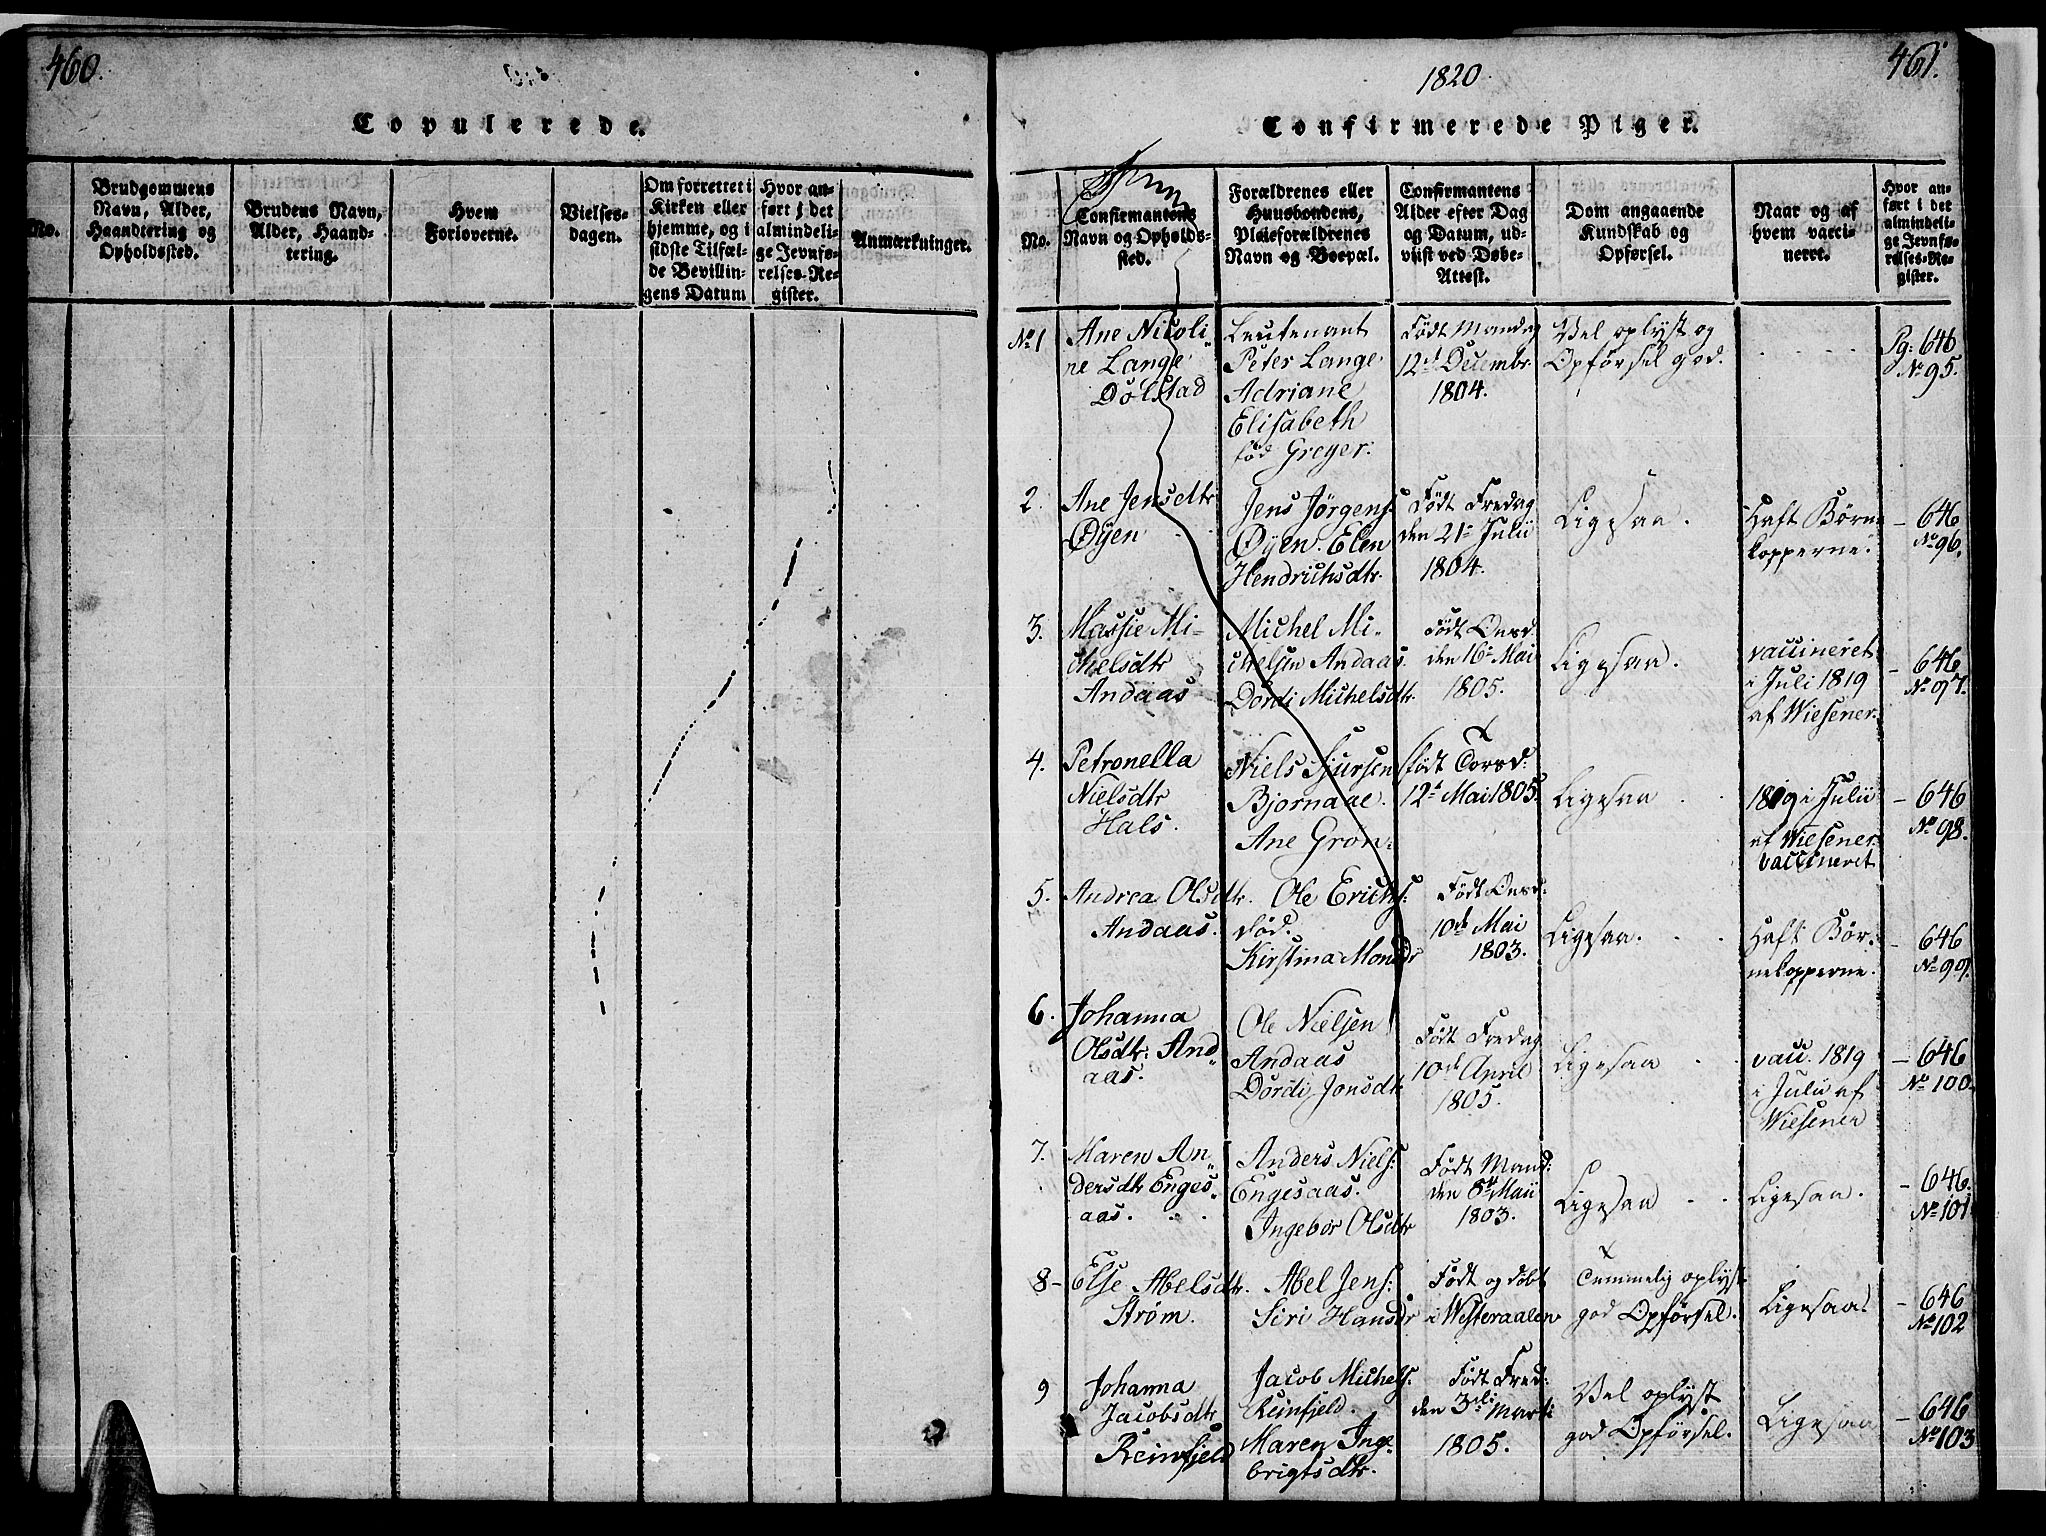 460.
Copulerede.
No.
Brudgommens
Navn, Alder,
Haandtering og
Opholdssted.
Brudens Navn,
Alder, Haand-
tering.
Hvem
Forloverne.
Vielses-
dagen.
Om forrettet i
Kirken eller
hjemme, og i
sidste Tilfæl-
de Bevillin-
gens Datum
Hvor an-
ført i det
almindeli-
ge Jevnfø-
relses-Re-
gister.
Anmærkninger.
461.
1820
Confirmerede Piger.
No.
Confirmantens
Navn og Opholds-
sted.
Forældrenes eller
Huusbondens,
Pleieforældrenes
Navn og Boepæl.
Confirmantens
Alder efter Dag
og Datum, ud-
viist ved Døbe-
Attest.
Dom angaaende
Kundskab og
Opførsel.
Naar og af
hvem vacci-
neret.
Hvor an-
ført i det
almindeli-
ge Jevnfø-
relses-Re-
gister.
No 1
Ane Nicoli-
ne Lange
Dolstad
Leutenant
Peter Lange
Adriane
Elisabeth
fød Greger.
Født Mandag
12te Decembr
1804.
Vel oplyst og
Opførsel god.
Pg: 646
No 95.
2.
Ane Jensdtr
Øyen
Jens Jørgens:
Øyen. Elen
Hendrichsdtr.
Født Fredag
den 21e Julii
1804.
Ligesaa.
Haft Børn
kopperne.
- 646
No 96.
3.
Massie Mi-
chelsdtr
Andaas
Michel Mi-
chelsen Andaas.
Dordi Michelsdtr.
Født Onsd.
den 16e Mai
1805.
Ligesaa.
vaccineret
i Juli 1819
af Wiesener.
- 646
No 97.
4.
Petronella
Nielsdtr
Hals.
Niels Sjursen
Bjornaae.
Ane Gron.
født Torsd:
12e Mai 1805.
Ligesaa
1819 i Julii
af Wiesener
vaccineret
- 646
No 98.
5.
Andrea Olsdtr.
Andaas.
Ole Erichs:
død.
Kirstina Monsdr
Født Onsd:
10de Mai
1803.
Ligesaa.
Haft Bør-
nekopperne.
- 646
No 99.
6.
Johanna
Olsdtr: And
aas.
Ole Nielsen
Andaas
Dordi Jonsdtr
Født Fredag
10de April
1805.
Ligesaa
vacc. 1819
i Julii af
Wiesener
- 646
No 100.
7.
Maren An-
dersdtr Enges
aas.
Anders Niels:
Engesaas.
Ingebor Olsdtr
Født Mand:
den 8de Maii
1803.
Ligesaa
Ligesaa.
- 646.
No 101
8-
Else Abelsdtr.
Strøm.
Abel Jens:
Siri Hansdr
Født og døbt
i Westeraalen
Temmelig oplyst
god Opførsel.
Ligesaa.
- 646
No 102
9
Johanna
Jacobsdtr
Reinfjeld
Jacob Michels:
Reinfjeld.
Maren Inge-
brigtsdtr.
Født Fred:
den 3die Marti
1805.
Vel oplyst
god Opførsel.
Ligesaa
- 646
No 103